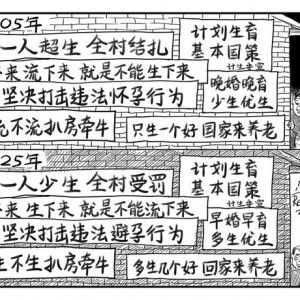 05年
一人超生 全村结扎
来 流下来 就是不能生下来
坚决打击违法怀孕行为
流不流扒房牵牛
计划生育
基本国策
计生委宣
晚婚晚育
少生优生
只生一个好 国家来养老
25年
一人少生 全村受罚
来 生下来 就是不能流下来
坚决打击违法避孕行为
生不生扒房牵牛
计划生育
基本国策
计生委宣
早婚早育
多生优生
多生几个好 国家来养老